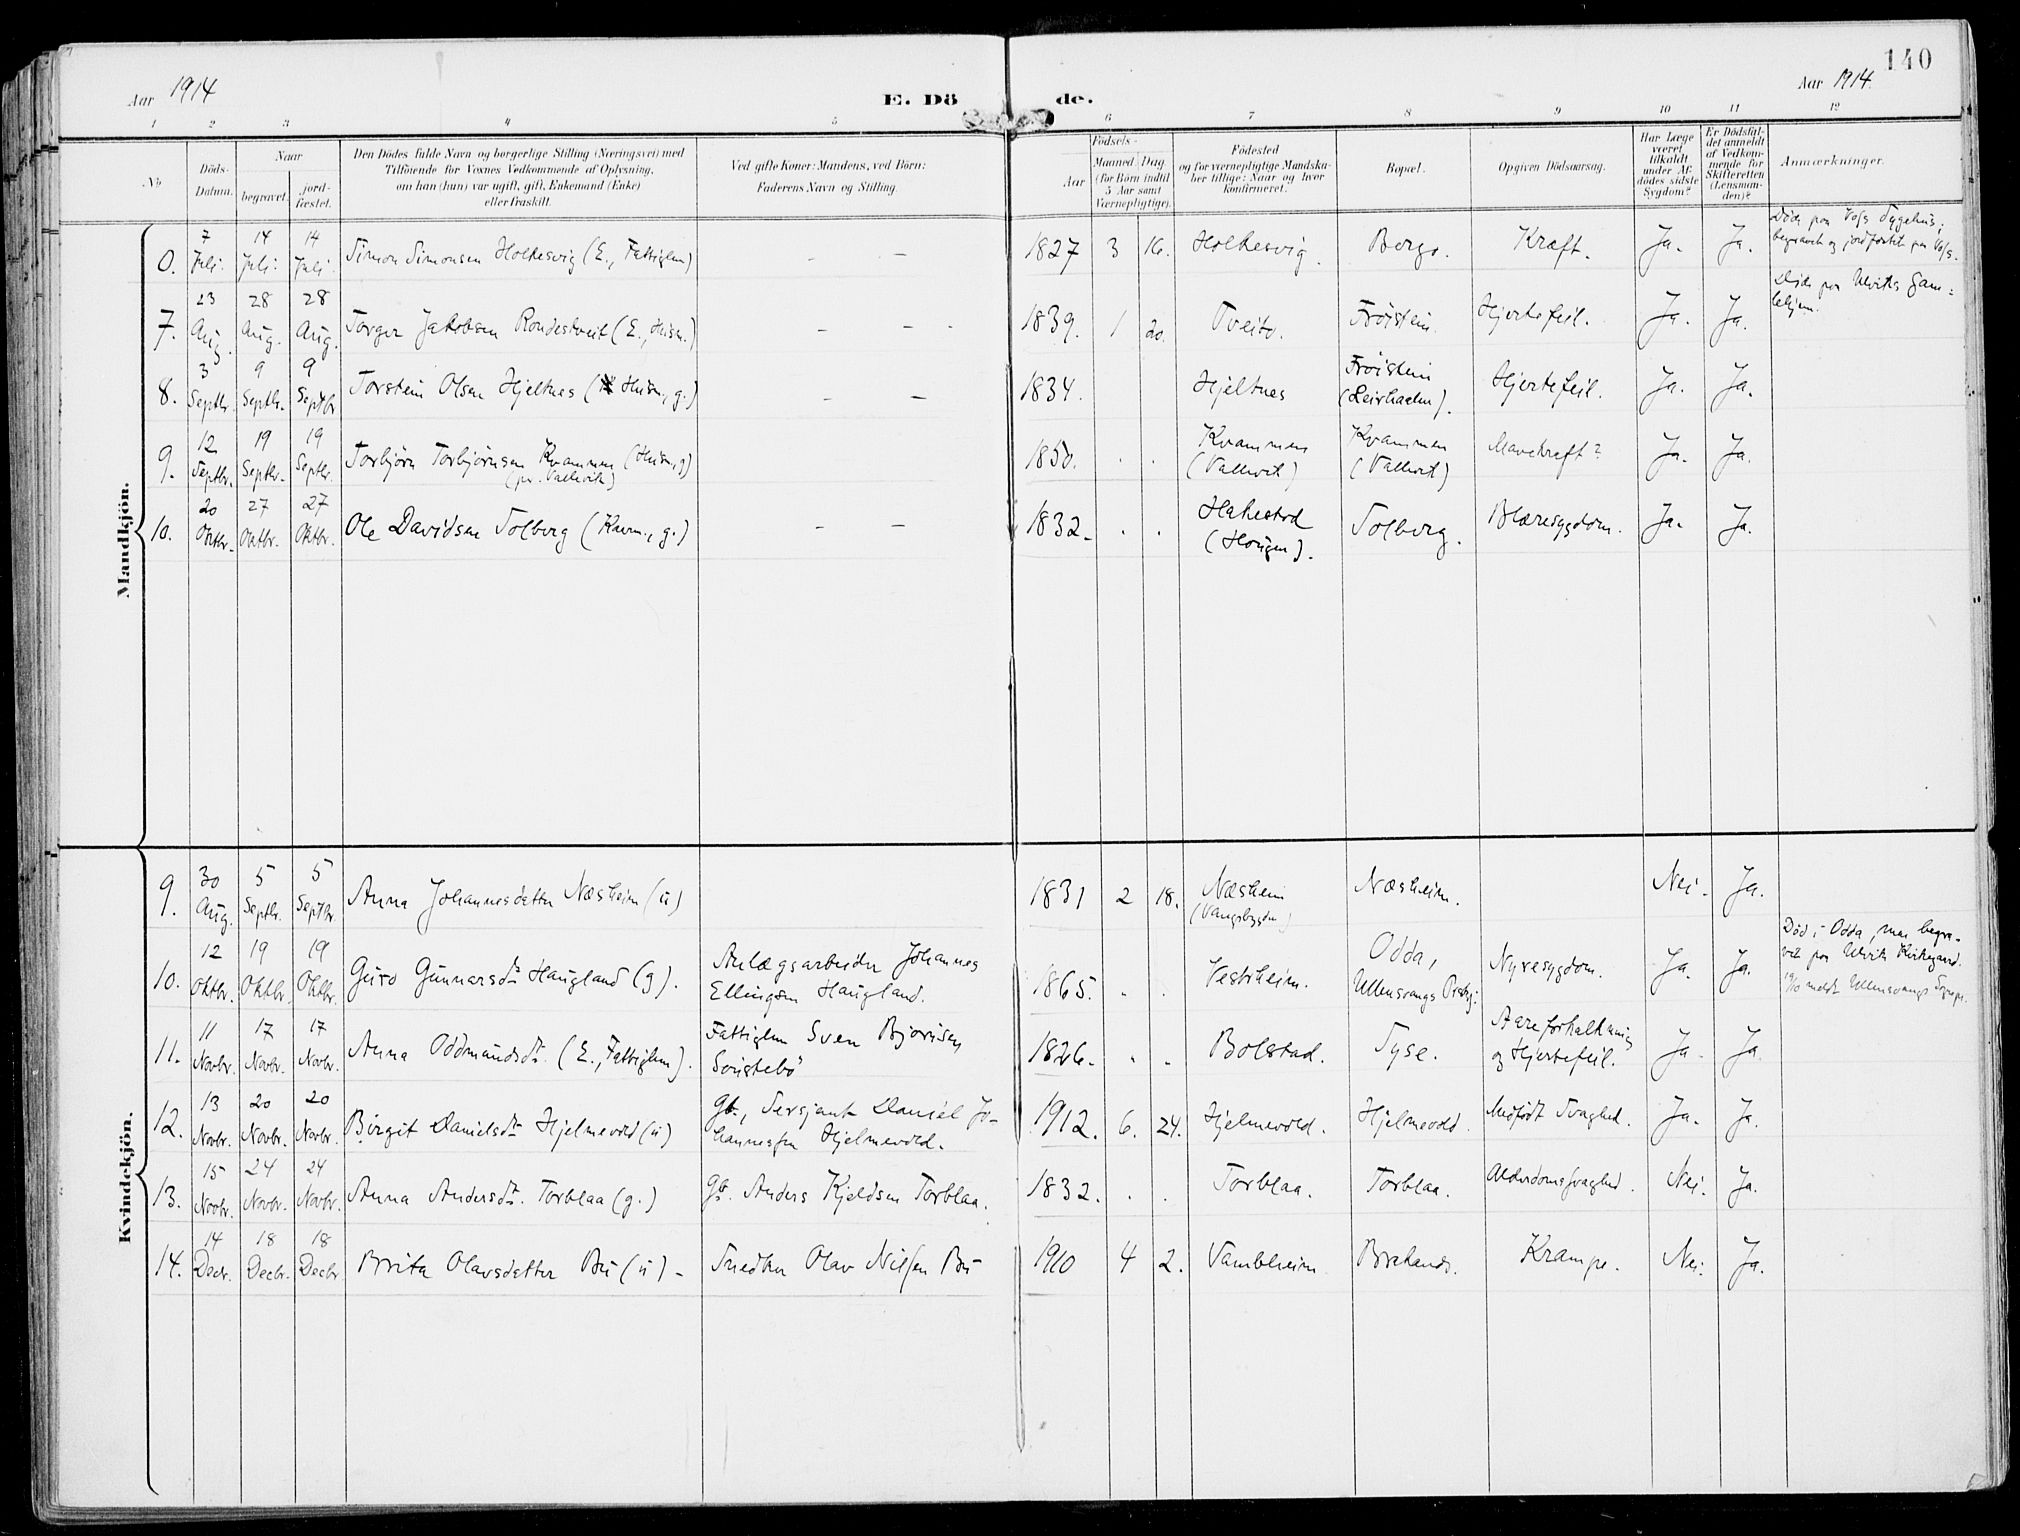 140
Aar 1914
E. Dö
de.
Aar 1914.
1 2 3 4 5 6 7 8 9 10 11 12
No
Döds-
Datum.
Naar
begravet.
jord-
fæstet.
Den Dödes fulde Navn og borgerlige Stilling (Næringsvei) med
Tilföiende for Voxnes Vedkommende af Oplysning,
om han (hun) var ugift, gift, Enkemand (Enke)
eller fraskilt.
Ved gifte Koner: Mandens, ved Börn:
Faderens Navn og Stilling.
Födsels-
Aar
Maaned Dag
(for Börn indtil
5 Aar samt
Værnepligtige).
Födested
og for værnepligtige Mandska-
ber tillige: Naar og hvor
konfirmeret.
Bopæl.
Opgiven Dödsaarsag.
Har Læge
været
tilkaldt
under Af-
dödes sidste
Sygdom?
Er Dödsfal-
det anmeldt
af Vedkom-
mende for
Skifteretten
(Lensman-
den)?
Anmærkninger.
Mandkjön.
0. 7 Juli. 14 Juli. 14 Juli. Simon Simonsen Holkesvig (E., Fattiglem) – – 1827 3 16. Holkesvig. Berge. Kræft. Ja. Ja. Döde paa Voss Sygehus;
begravet og jordfæstet paa Voss.
7. 23 Aug. 28 Aug. 28 Aug. Torger Jakobsen Rondestveit (E., Husm.) – – 1839. 1 20. Tveito. Fröistein. Hjertefeil. Ja. Ja. Döde paa Ulviks Gam=
lehjem.
8. 3 Septbr. 9 Septbr. 9 Septbr Torstein Olsen Hjeltnes (Husm., g.) – – 1834. Hjeltnes Fröistein
(Leirhaaen). Hjertefeil. Ja. Ja.
9. 12 Septbr. 19 Septbr. 19 Septbr. Torbjörn Torbjörnsen Kvammen (Husm., g)
(pr. Vallevik) 1850. . . Kvammen
(Vallevik) Kvammen
(Vallevik) Mavekræft? Ja. Ja.
10. 20 Oktbr. 27 Oktbr. 27 Oktbr. Ole Davidsen Solberg (Kaarm., g.) – – 1832. . . Hakestad
(Hougen). Solberg. Blæresygdom. Ja. Ja.
Kvindekjön.
9. 30 Aug. 5 Septbr. 5 Septbr. Anna Johannesdatter Næsheim (u) 1831 2 18. Næsheim
(Vangsbygden) Næsheim. Nei. Ja.
10. 12 Oktbr. 19 Oktbr. 19 Oktbr. Guro Gunnarsdtr Haugland (g). Anlægsarbeider Johannes
Ellingsen Haugland. 1865. . . Vestrheim. Odda,
Ullensvangs Prestgj. Nyresygdom. Ja. Ja. Död i Odda, men begra-
vet paa Ulvik Kirkegaard.
19/10 meldt Ullensvangs Sognepr.
11. 11 Novbr. 17 Novbr. 17 Novbr. Anna Oddmundsdtr. (E., Fattiglem). Fattiglem Sven Bjornsen
Soustebö 1826. . . Bolstad. Syse. Aareforkalkning
og Hjertefeil. Ja. Ja.
12. 13 Novbr. 20 Novbr. 20 Novbr. Birgit Danielsdtr Hjelmevold (u) Gb., Sersjant Daniel Jo-
hannessen Hjelmevold. 1912. 6. 24. Hjelmevold. Hjelmevold. Medfödt Svaghed. Ja. Ja.
13. 15 Novbr. 24 Novbr. 24 Novbr. Anna Andersdtr. Torblaa (g.) Gb. Anders Kjeldsen Torblaa. 1832. . . Torblaa. Torblaa. Alderdomssvaghed. Nei. Ja.
14. 14 Decbr. 18 Decbr. 18 Decbr. Brita Olavsdatter Bu (u) – Snedker Olav Nilssen Bu 1910 4 2. Vambheim Brakanes. Krampe. Nei. Ja.